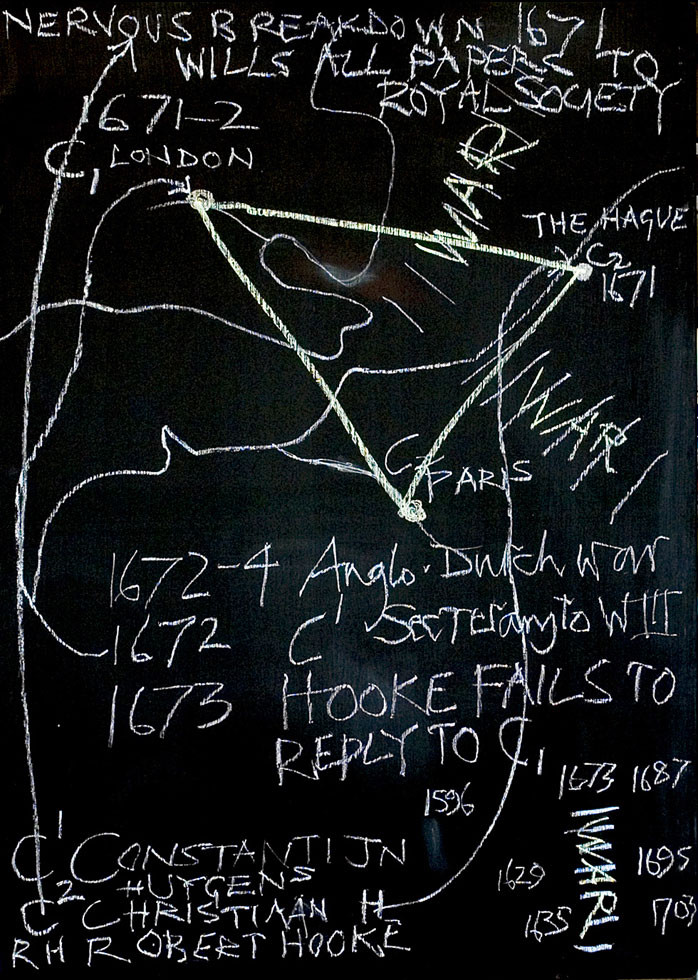 NERVOUS BREAKDOWN 1671
WILLS ALL PAPERS TO
ROYAL SOCIETY
1671-2
C1 LONDON
WAR
THE HAGUE
C2
1671
WAR
PARIS
1672-4 Anglo-Dutch War
1672 C1 Secretary to WIII
1673 HOOKE FAILS TO
REPLY TO C1
1673 1687
1596
WAR
1695
1629
1635
C1 CONSTANTIJN
HUYGENS
C2 CHRISTIAAN H
RH ROBERT HOOKE